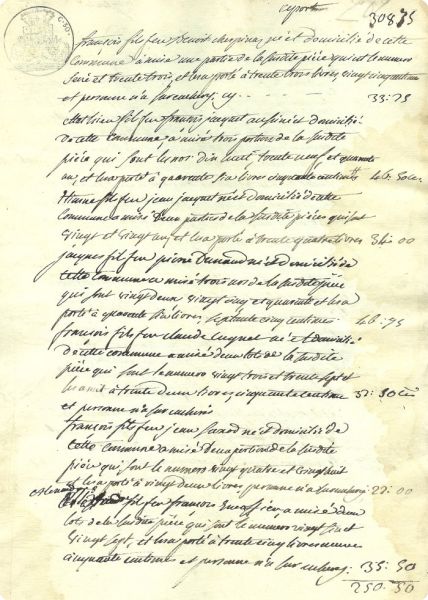 report 308 75
françois fils feu Benoit né et domicilié de cette
commune a misé une partie de la susdite pièce qui est le numero
seize et trente trois, et les a porté à trente trois livres vingt cinq centimes
et personne n'a surenchery, cy - - - 33: 25
fils feu françois jaquet aussi né et domicilié
de cette commune, a misé trois portion de la susdite
pièce qui sont les nos dix huit trente neuf et quarante
un, et les a porté à quarante six livres cinquante centimes 46: 50
Etienne fils feu jean jaquet né et domicilié de cette
commune a misé deux portion de la susdite pièce qui sont
vingt et vingt un, et les a porté à trente quatre livres 34: 00
jaques fils feu pierre né et domicilié de
cette commune a misé trois nos de la susdite pièce
qui sont vingt deux vingt cinq et quarante et les a
porté à quarante six livres septante cinq centimes 46: 75
françois fils feu claude né et domicilié
de cette commune a misé deux lots de la susdite
pièce qui sont le numero vingt trois et trente sept et
les a mis à trente deux livres cinquante centimes 32: 50
et personne n'a surenchéris
françois fils feu jean né et domicilié de
cette commune a misé deux portion de la susdite
pièce qui sont le numero vingt quatre et vingt huit
et les a porté à vingt deux livres personne n'a surenchery 22: 00
fils feu françois a misé deux
lots de la susdite pièce qui sont le numero vingt six et
vingt sept, et les a porté à trente cinq livres
cinquante centimes et personne n'a surenchery: 35: 50
250: 50